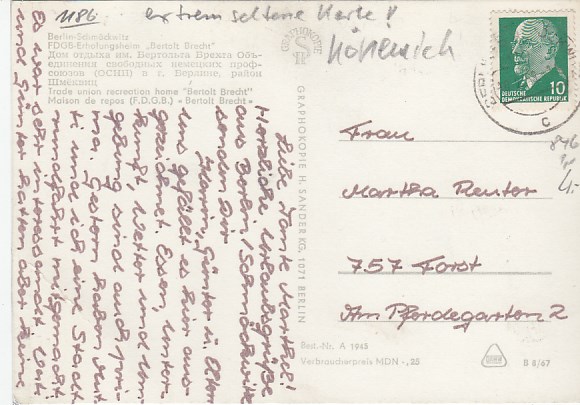 1186
extrem seltene Karte!
Köpenick
Berlin-Schmöckwitz
FDGB-Erholungsheim „Bertolt Brecht"
Дом отдыха им. Бертольта Брехта Объ-
единения свободных немецких проф-
союзов (ОСНП) в г. Берлине, район
Шмёквиц
Trade union recreation home "Bertolt Brecht"
Maison de repos (F.D.G.B.) «Bertolt Brecht»
GRAPHOKOPIE
GRAPHOKOPIE H. SANDER KG, 1071 BERLIN
DEUTSCHE
DEMOKRATISCHE REPUBLIK
10
BERLIN
c
896
4.-
Liebe Tante Martha!
Herzliche Urlaubsgrüße
aus Berlin/Schmöckwitz
senden Dir
Karin, Günter u. Eltern
Uns gefällt es hier aus-
gezeichnet. Essen, Unter-
kunft, Wetter und Um-
gebung sind auch pri-
ma. Gestern haben Mut-
ti und ich eine Stadt-
rundfahrt mitgemacht.
Es war sehr interessant. Vati
und Günter hatten aber keine
Frau
Martha Reuter
757 Forst
Am Pferdegarten 2
Best.-Nr. A 1945
Verbraucherpreis MDN -,25
B 8/67